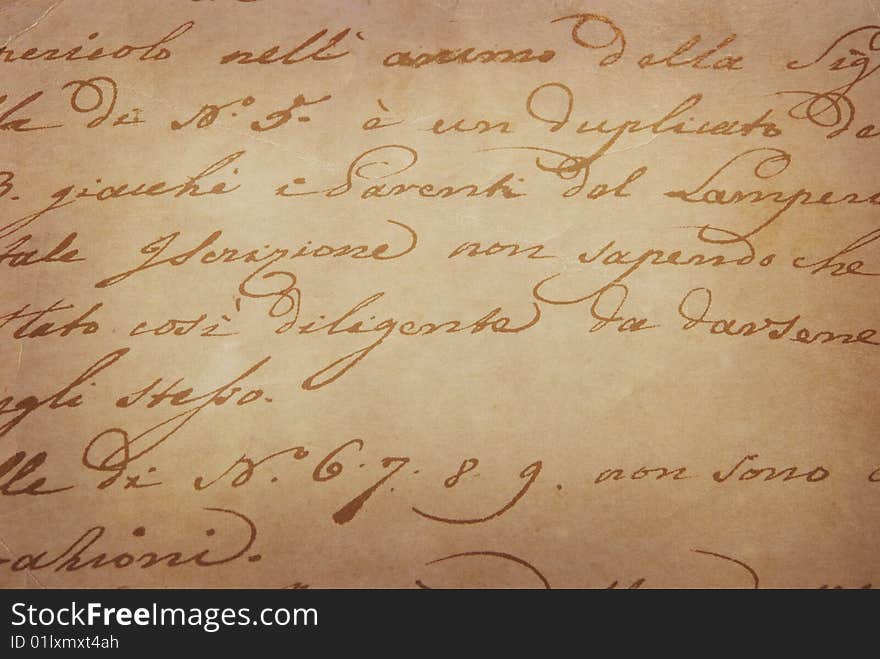 pericolo nell' animo della Sig
la di N.º 5. è un duplicato de
3. giacchè i Parenti del Lampere
tale Iscrizione non sapendo che
ttato così diligente da darsene
egli stesso.
lle di N.º 6. 7. 8. 9. non sono
azioni.
StockFreeImages.com
ID 01lxmxt4ah